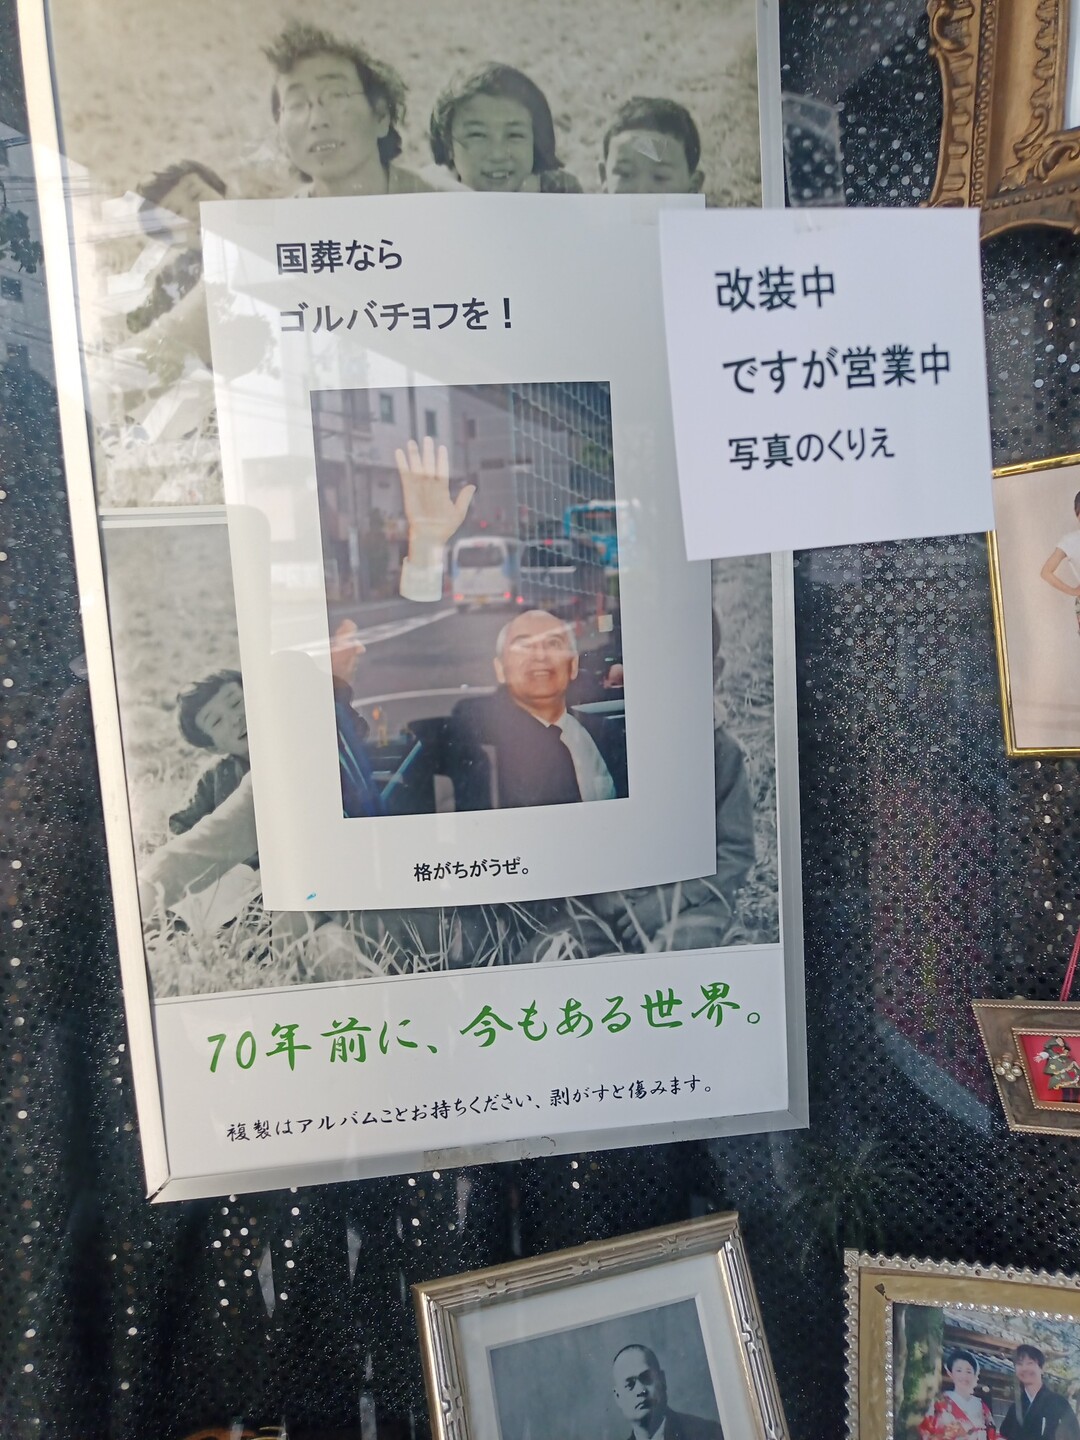 国葬なら
ゴルバチョフを！
格がちがうぜ。
改装中
ですが営業中
写真のくりえ
70年前に、今もある世界。
複製はアルバムごとお持ちください、剥がすと傷みます。